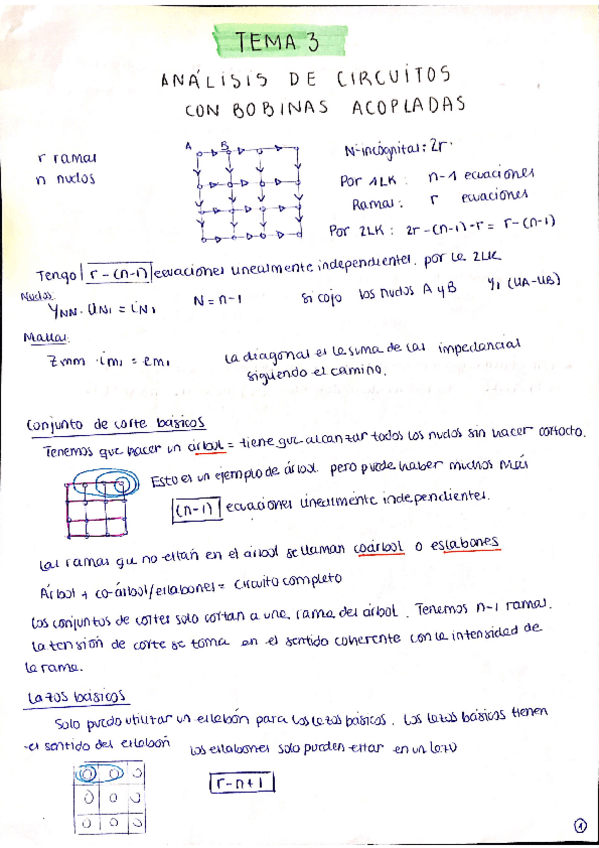 TEMA 3
ANÁLISIS DE CIRCUITOS
CON BOBINAS ACOPLADAS
r ramas
n nudos
A B
Nº incógnitas: 2r.
Por 1LK: n-1 ecuaciones
Ramas: r ecuaciones
Por 2LK: 2r-(n-1)-r = r-(n-1)
Tengo r-(n-1) ecuaciones linealmente independientes. por la 2LK
Nudos:
YNN · UN1 = iN1 N = n-1 Si cojo los nudos A y B Y1 (UA-UB)
Mallas:
Zmm · im1 = em1 La diagonal es la suma de las impedancias
siguiendo el camino.
Conjunto de corte básicos
Tenemos que hacer un árbol = tiene que alcanzar todos los nudos sin hacer cortocto.
Esto es un ejemplo de árbol. pero puede haber muchos más
(n-1) ecuaciones linealmente independientes.
Las ramas que no están en el árbol se llaman coárbol o eslabones
Árbol + co-árbol/eslabones = circuito completo
Los conjuntos de cortes solo cortan a una rama del árbol. Tenemos n-1 ramas.
La tensión de corte se toma en el sentido coherente con la intensidad de
la rama.
Lazos básicos
Solo puedo utilizar un eslabón para los lazos básicos. Los lazos básicos tienen
el sentido del eslabón los eslabones solo pueden estar en un lazo
r-n+1
1